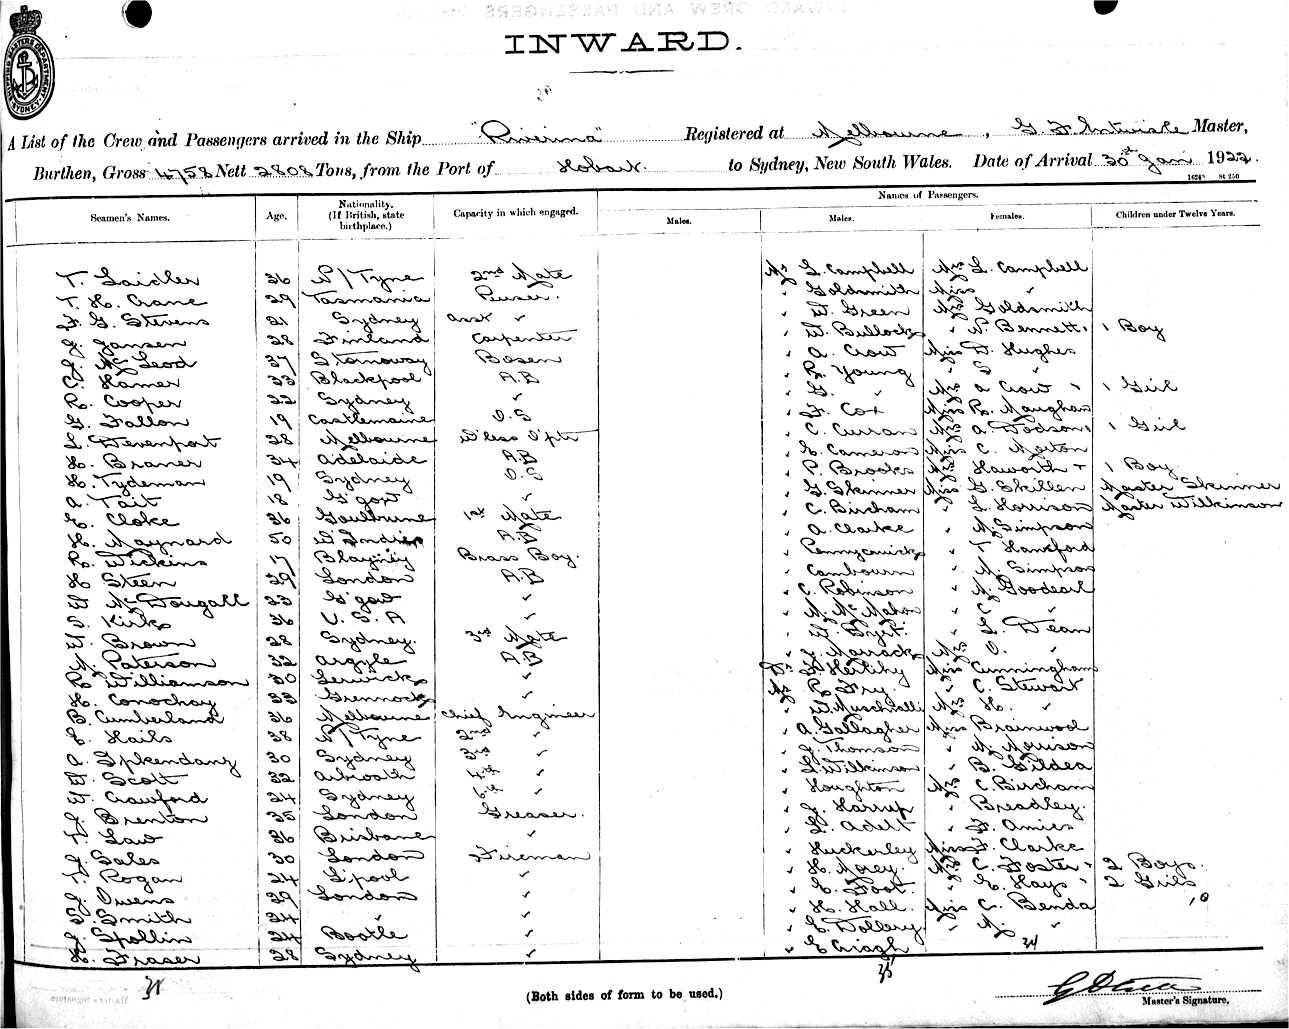 INWARD.
A List of the Crew and Passengers arrived in the Ship "Riverina" Registered at Melbourne, G. F. Entwisle Master,
Burthen, Gross 4758 Nett 2808 Tons, from the Port of Hobart. to Sydney, New South Wales. Date of Arrival 30th Jan 1922.
Seamen's Names. Age. Nationality. (If British, state birthplace.) Capacity in which engaged. Names of Passengers.
Males. Males. Females. Children under Twelve Years.
T. Laidler 36 N/Tyne 2nd Mate Mr L. Campbell Mrs L. Campbell
T. H. Crane 29 Tasmania Purser. " Goldsmith Miss "
F. G. Stevens 21 Sydney asst " " W. Green Mrs Goldsmith
J. Jansen 28 Finland Carpenter " W. Bullock " N. Bennett, 1 Boy
J. McLeod 37 Stornoway Bosen " A. Crow Miss D. Hughes
C. Hamer 33 Blackpool A.B " R. Young " S "
R. Cooper 22 Sydney " " G. " Mrs A Crow " 1 Girl
G. Fallon 19 Castlemaine O.S " F. Cox Miss R. Maughan
L. Devenport 28 Melbourne W'less O'ptr " C. Curran Mrs A. Dodson, 1 Girl
H. Braner 34 Adelaide A.B " E. Cameron Miss C. Morton
H. Tydeman 19 Sydney O.S " P. Brooks Mrs Haworth + 1 Boy
A. Tait 18 G'gow " " G. Skinner Miss G. Skillen Master Skinner
E. Cloke 36 Goulburne 1st Mate " C. Bircham " L. Horrison Master Wilkinson
H. Maynard 50 W Indies A.B " A. Clarke " M. Simpson
R. Wickins 17 Blayney Brass Boy. " Pennycuick " T. Hansford
H Steen 29 London A.B " Cambourn " M. Simpson
W McDougall 33 G'gow " " C. Robinson " M. Goodearl
S. Kirk 36 U.S.A " " M. McMahon " C "
W. Brown 28 Sydney. 3rd Mate " W. Byrt. " L. Dean
N. Paterson 32 Argyle A.B " J. Marrack Mrs O. "
R. Williamson 30 Lerwick " Dr F. Herlihy Miss Cunningham
H. Conochay 33 Greenock " Mr R. Fry. " C. Stewart
B. Cumberland 36 Melbourne Chief Engineer " W. Muschialli Mrs H. "
E. Hails 38 N/Tyne 2nd " " A. Gallagher Miss Brainwood
A. Spkendany 30 Sydney 3rd " " J. Thomson " M. Morrison
W. Scott 32 Arbroath 4th " " L. Wilkinson " B. Gildea
W. Crawford 24 Sydney 6th " " Houghton Mrs C. Bircham
J. Brenton 35 London Greaser. " J. Harrup " Breadley.
T. Law 36 Brisbane " " L. Adelt " F. Amies
J. Sales 30 London Fireman " Huckerley Miss F. Clarke
T. Rogan 24 L'pool " " H. Morey. Mrs C. Foster + 2 Boys.
J. Owens 29 London " " E. Foot. " E. Hays " 2 Girls
S. Smith 24 " " " H. Hall. Miss C. Benda 10
J. Spollin 24 Bootle " " E. Dollery " M. "
H. Fraser 28 Sydney " " E Criagh 34
35 35
(Both sides of form to be used.)
Master's Signature.